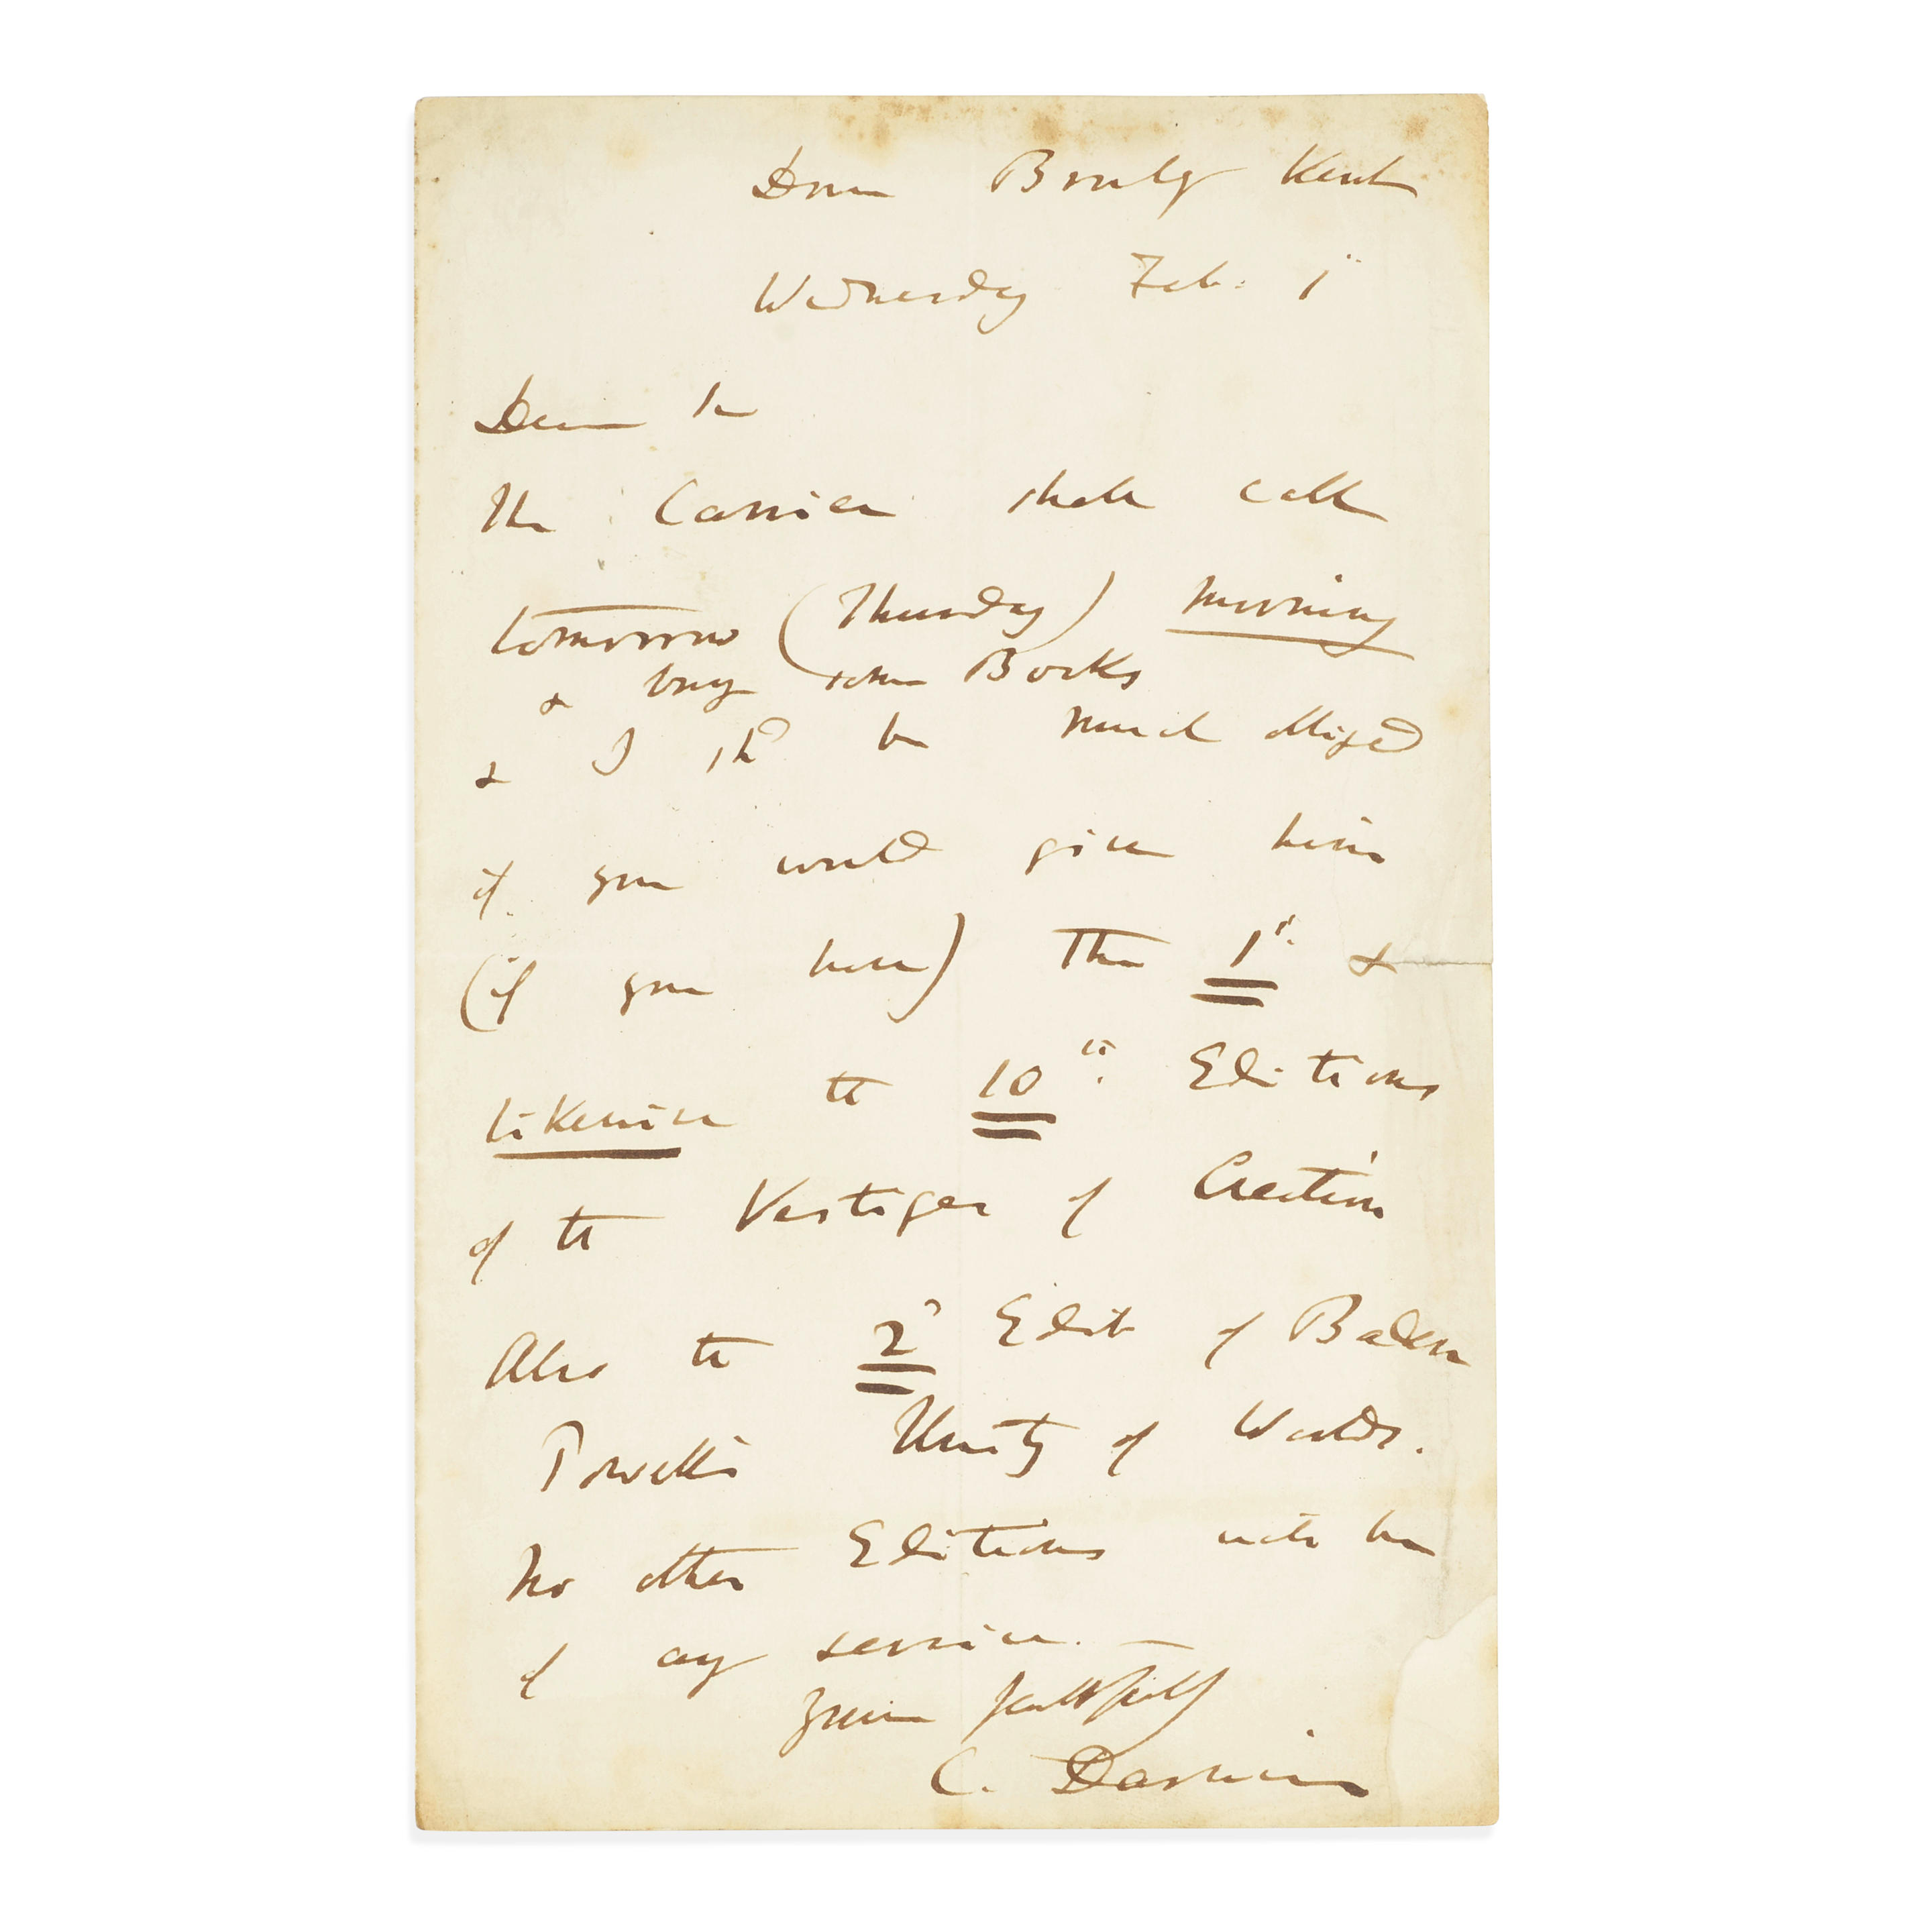 Down Bromley Kent
Wednesday Feb. 1st
Dear Sir
The Carrier shall call
tomorrow (Thursday) morning
& bring some Books
& I shd be much obliged
if you would give him
(if you have) the 1st. &
likewise the 10th. Editions
of the Vestiges of Creation
Also the 2d Edit of Baden
Powell's Unity of Worlds.
No other Editions will be
of any service.—
Yours faithfully
C. Darwin